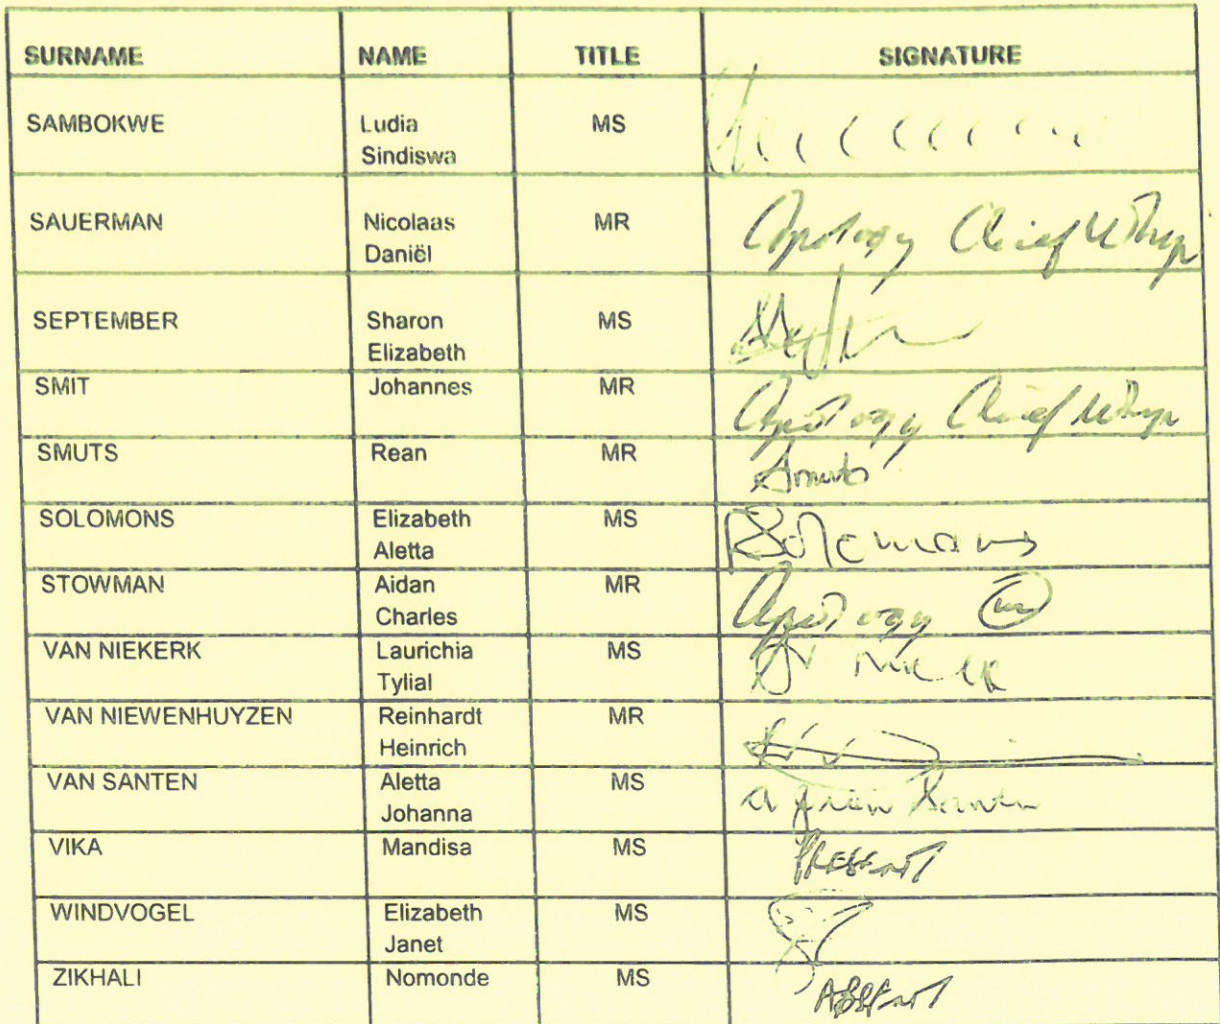 SURNAME NAME TITLE SIGNATURE
SAMBOKWE Ludia MS
Sindiswa
SAUERMAN Nicolaas MR Apology Chief Whip
Daniël
SEPTEMBER Sharon MS
Elizabeth
SMIT Johannes MR Apology Chief Whip
SMUTS Rean MR Smuts
SOLOMONS Elizabeth MS Solomons
Aletta
STOWMAN Aidan MR Apology
Charles
VAN NIEKERK Laurichia MS
Tylial
VAN NIEWENHUYZEN Reinhardt MR
Heinrich
VAN SANTEN Aletta MS
Johanna
VIKA Mandisa MS PRESENT
WINDVOGEL Elizabeth MS
Janet
ZIKHALI Nomonde MS ABSENT